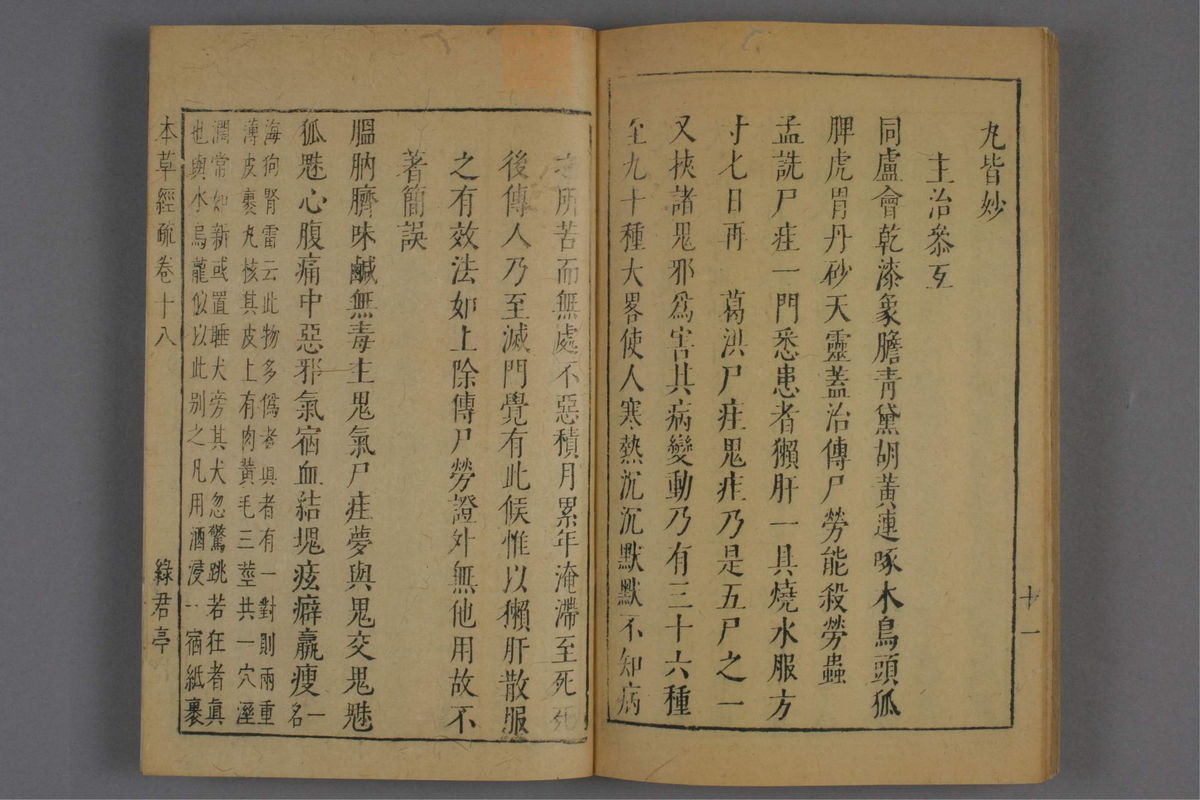 丸皆妙
主治參互
同盧會乾漆象膽青黛胡黃連啄木鳥頭狐
脾虎胃丹砂天靈蓋治傳尸勞能殺勞蟲
孟詵尸疰一門悉患者獺肝一具燒水服方
寸匕日再　葛洪尸疰鬼疰乃是五尸之一
又挾諸鬼邪爲害其病變動乃有三十六種
至九十種大畧使人寒熱沉沉默默不知病
十一
之所苦而無處不惡積月累年淹滯至死死
後傳人乃至滅門覺有此候惟以獺肝散服
之有效法如上除傳尸勞證外無他用故不
著簡誤
膃肭臍味鹹無毒主鬼氣尸疰夢與鬼交鬼魅
狐魅心腹痛中惡邪氣宿血結塊痃癖羸瘦一名
海狗腎雷云此物多僞者眞者有一對則兩重
薄皮裹丸核其皮上有肉黃毛三莖共一穴溼
潤常如新或置睡犬旁其犬忽驚跳若狂者眞
也與水烏龍似以此別之凡用酒浸一宿紙裹
本草經疏卷十八
綠君亭